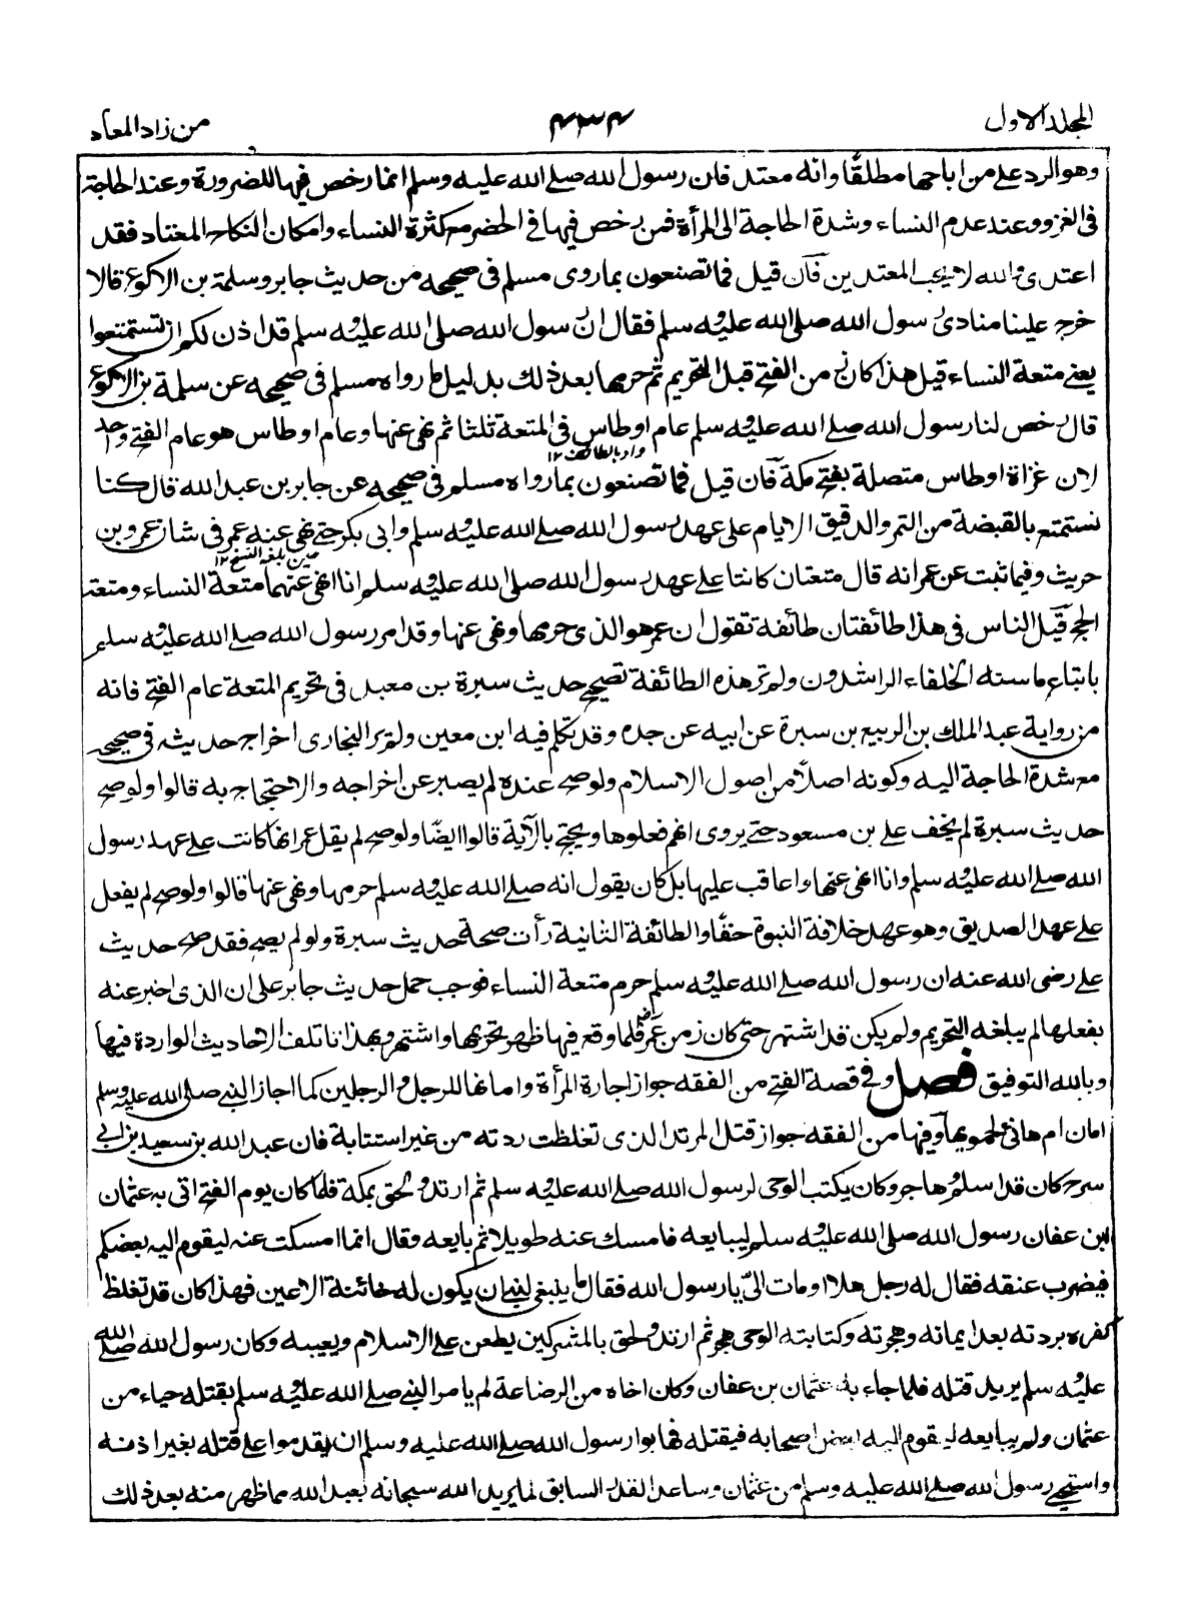 المجلد الاول
۴۳۴
من زاد المعاد
وهو الرد على من اباحها مطلقا وانه معتد فان رسول الله صلى الله عليه وسلم انما رخص فيها للضرورة وعند الحاجة
فى الغزو وعند عدم النساء وشدة الحاجة الى المرأة فمن رخص فيها فى الحضر مع كثرة النساء وامكان النكاح المعتاد فقد
اعتدى والله لا يحب المعتدين فان قيل فما تصنعون بما روى مسلم فى صحيحه من حديث جابر وسلمة بن الاكوع قالا
خرج علينا منادى رسول الله صلى الله عليه وسلم فقال ان رسول الله صلى الله عليه وسلم قد اذن لكم ان تستمتعوا
يعنى متعة النساء قيل هذا كان زمن الفتح قبل التحريم ثم حرمها بعد ذلك بدليل ما رواه مسلم فى صحيحه عن سلمة بن الاكوع
قال رخص لنا رسول الله صلى الله عليه وسلم عام اوطاس فى المتعة ثلثا ثم نهى عنها وعام اوطاس هو عام الفتح واحد
واد بالطائف ۱۲
لان غزاة اوطاس متصلة بفتح مكة فان قيل فما تصنعون بما رواه مسلم فى صحيحه عن جابر بن عبد الله قال كنا
نستمتع بالقبضة من التمر والدقيق الايام على عهد رسول الله صلى الله عليه وسلم وابى بكر حتى نهى عنه عمر فى شان عمرو بن
حين بلغه النسخ ۱۲
حريث وفيما ثبت عن عمر انه قال متعتان كانتا على عهد رسول الله صلى الله عليه وسلم انا انهى عنهما متعة النساء ومتعة
الحج قيل الناس فى هذا طائفتان طائفة تقول ان عمر هو الذى حرمها ونهى عنها وقد امر رسول الله صلى الله عليه وسلم
باتباع ما سنه الخلفاء الراشدون ولم تر هذه الطائفة تصحيح حديث سبرة بن معبد فى تحريم المتعة عام الفتح فانه
من رواية عبد الملك بن الربيع بن سبرة عن ابيه عن جده وقد تكلم فيه ابن معين ولم ير البخارى اخراج حديثه فى صحيحه
مع شدة الحاجة اليه وكونه اصلا من اصول الاسلام ولو صح عنده لم يصبر عن اخراجه والاحتجاج به قالوا ولو صح
حديث سبرة لم يخف على بن مسعود حتى يروى انهم فعلوها ويحتج بالآية قالوا ايضا ولو صح لم يقل عمر انها كانت على عهد رسول
الله صلى الله عليه وسلم وانا انهى عنها واعاقب عليها بل كان يقول انه صلى الله عليه وسلم حرمها ونهى عنها قالوا ولو صح لم يفعل
على عهد الصديق وهو عهد خلافة النبوة حقا والطائفة الثانية رأت صحة حديث سبرة ولو لم يصح فقد صح حديث
على رضى الله عنه ان رسول الله صلى الله عليه وسلم حرم متعة النساء فوجب حمل حديث جابر على ان الذى اخبر عنه
بفعلها لم يبلغه التحريم ولم يكن قد اشتهر حتى كان زمن عمر فلما وقع فيها ظهر تحريمها واشتهر وبهذا تاتلف الاحاديث الواردة فيها
وبالله التوفيق فصل وفى قصة الفتح من الفقه جواز اجارة المرأة وامانها للرجل والرجلين كما اجاز النبى صلى الله عليه وسلم
امان ام هانئ لحمويها وفيها من الفقه جواز قتل المرتد الذى تغلظت ردته من غير استتابة فان عبد الله بن سعيد بن ابى
سرح كان قد اسلم وهاجر وكان يكتب الوحى لرسول الله صلى الله عليه وسلم ثم ارتد ولحق بمكة فلما كان يوم الفتح اتى به عثمان
ابن عفان رسول الله صلى الله عليه وسلم ليبايعه فامسك عنه طويلا ثم بايعه وقال انما امسكت عنه ليقوم اليه بعضكم
فيضرب عنقه فقال له رجل هلا اومات الىّ يا رسول الله فقال ما ينبغى لنبى ان يكون له خائنة الاعين فهذا كان قد تغلظ
كفره بردته بعد ايمانه وهجرته وكتابته الوحى هجو ثم ارتد ولحق بالمشركين يطعن على الاسلام ويعيبه وكان رسول الله صلى الله
عليه وسلم يريد قتله فلما جاء به عثمان بن عفان وكان اخاه من الرضاعة لم يامر النبى صلى الله عليه وسلم بقتله حياء من
عثمان ولم يبايعه ليقوم اليه بعض اصحابه فيقتله فهابوا رسول الله صلى الله عليه وسلم ان يقدموا على قتله بغير اذنه
واستحى رسول الله صلى الله عليه وسلم من عثمان وساعد القدر السابق لما يريد الله سبحانه بعبد الله مما ظهر منه بعد ذلك